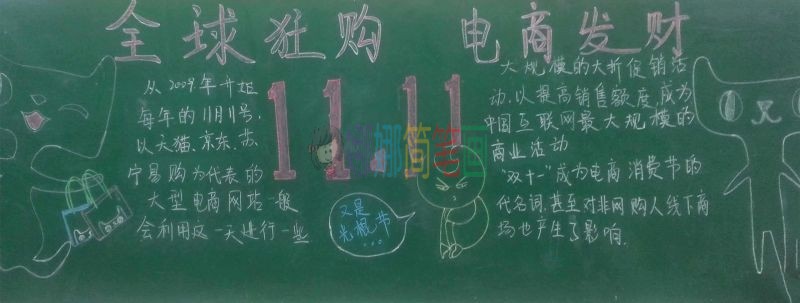 全球狂购 电商发财
从2009年开始
每年的11月11号,
以天猫、京东、苏
宁易购为代表的
大型电商网站一般
会利用这一天进行一些
11.11
娜简笔画
又是
光棍节
...
大规模的大折促销活
动,以提高销售额度,成为
中国互联网最大规模的
商业活动
"双十一"成为电商消费节的
代名词,甚至对非网购人线下商
场也产生了影响.